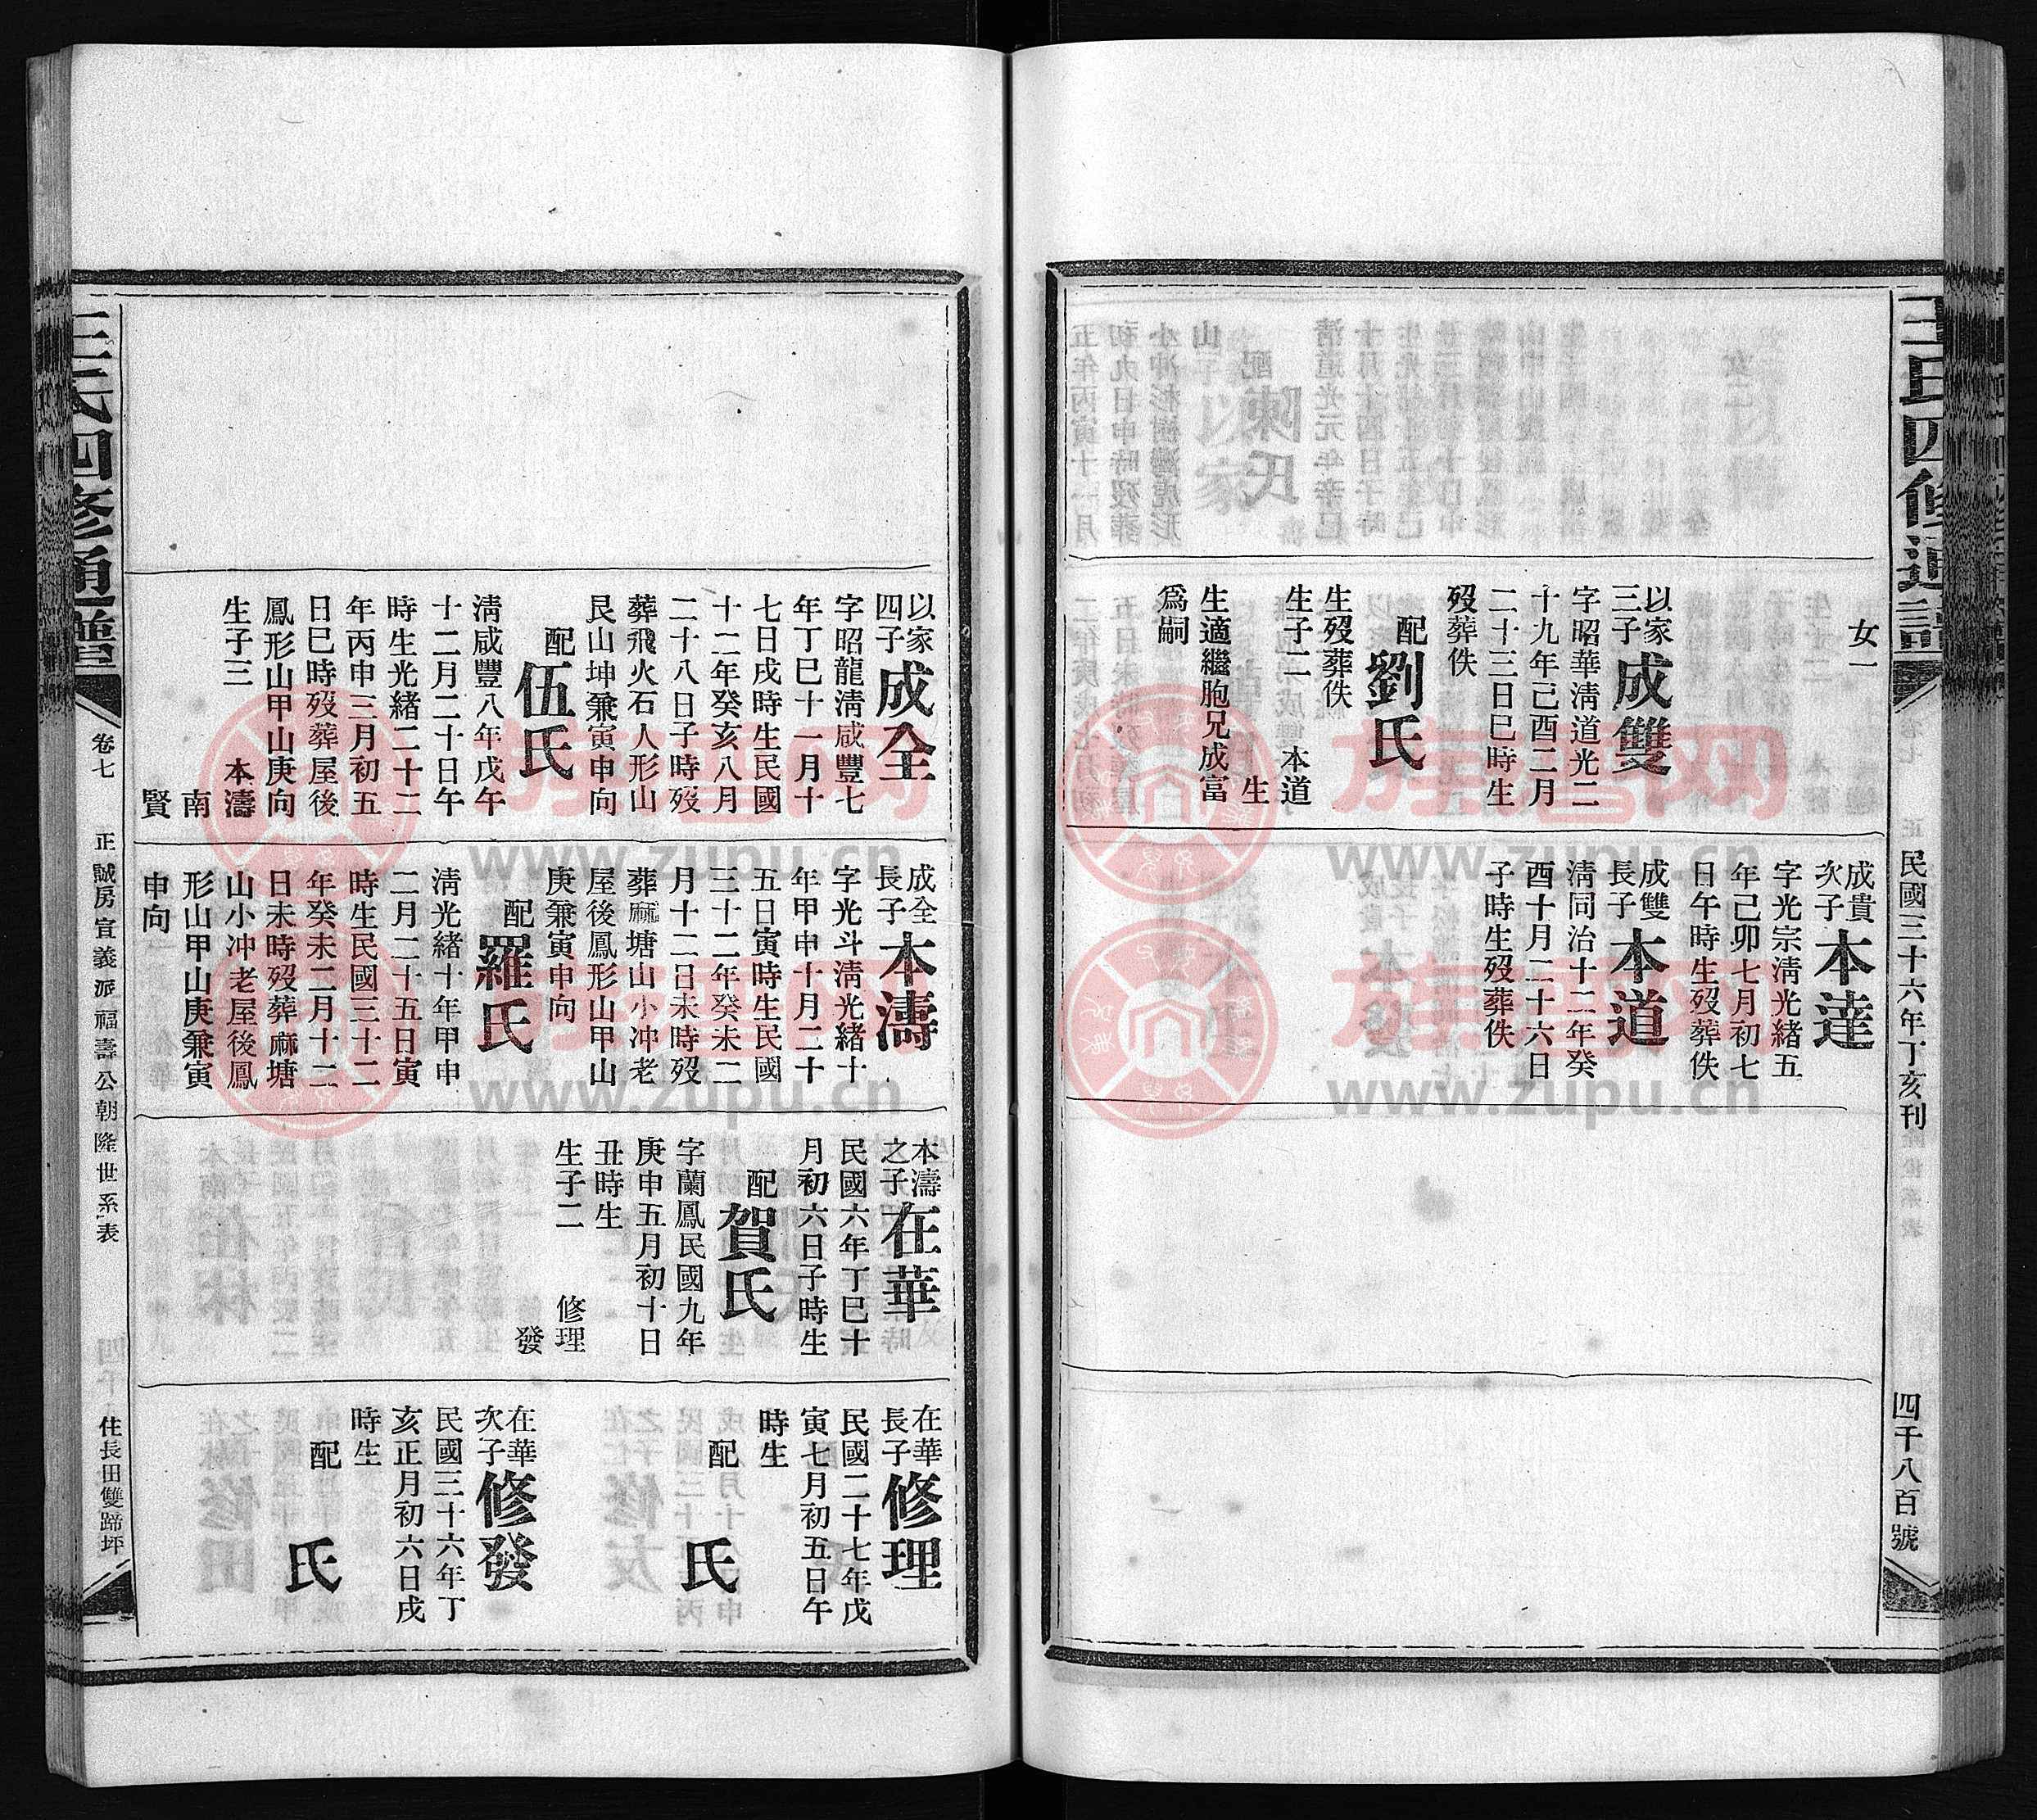 王氏四修通譜
民國三十六年丁亥刊
四千八百號
女一
以家
三子
成雙
字昭華清道光二
十九年己酉二月
二十三日巳時生
歿葬佚
配
劉氏
生歿葬佚
生子二 本道
生
生適繼胞兄成富
爲嗣
成貴
次子
本達
字光宗清光緒五
年己卯七月初七
日午時生歿葬佚
成雙
長子
本道
清同治十二年癸
酉十月二十六日
子時生歿葬佚
以家
四子
成全
字昭龍清咸豐七
年丁巳十一月十
七日戌時生民國
十二年癸亥八月
二十八日子時歿
葬飛火石人形山
艮山坤兼寅申向
配
伍氏
清咸豐八年戊午
十二月二十日午
時生光緒二十二
年丙申三月初五
日巳時歿葬屋後
鳳形山甲山庚向
生子三 本濤
南
賢
成全
長子
本濤
字光斗清光緒十
年甲申十月二十
五日寅時生民國
三十二年癸未二
月十二日未時歿
葬蔴塘山小冲老
屋後鳳形山甲山
庚兼寅申向
配
羅氏
清光緒十年甲申
二月二十五日寅
時生民國三十二
年癸未二月十二
日未時歿葬蔴塘
山小冲老屋後鳳
形山甲山庚兼寅
申向
本濤
之子
在華
民國六年丁巳十
月初六日子時生
配
賀氏
字蘭鳳民國九年
庚申五月初十日
丑時生
生子二 修理
發
在華
長子
修理
民國二十七年戊
寅七月初五日午
時生
配 氏
在華
次子
修發
民國三十六年丁
亥正月初六日戌
時生
配 氏
王氏四修通譜
卷七
正誠房宣義派福壽公朝隆世系表
住長田雙蹄坪
族譜网
www.zupu.cn
族譜网
www.zupu.cn
族譜网
www.zupu.cn
族譜网
www.zupu.cn